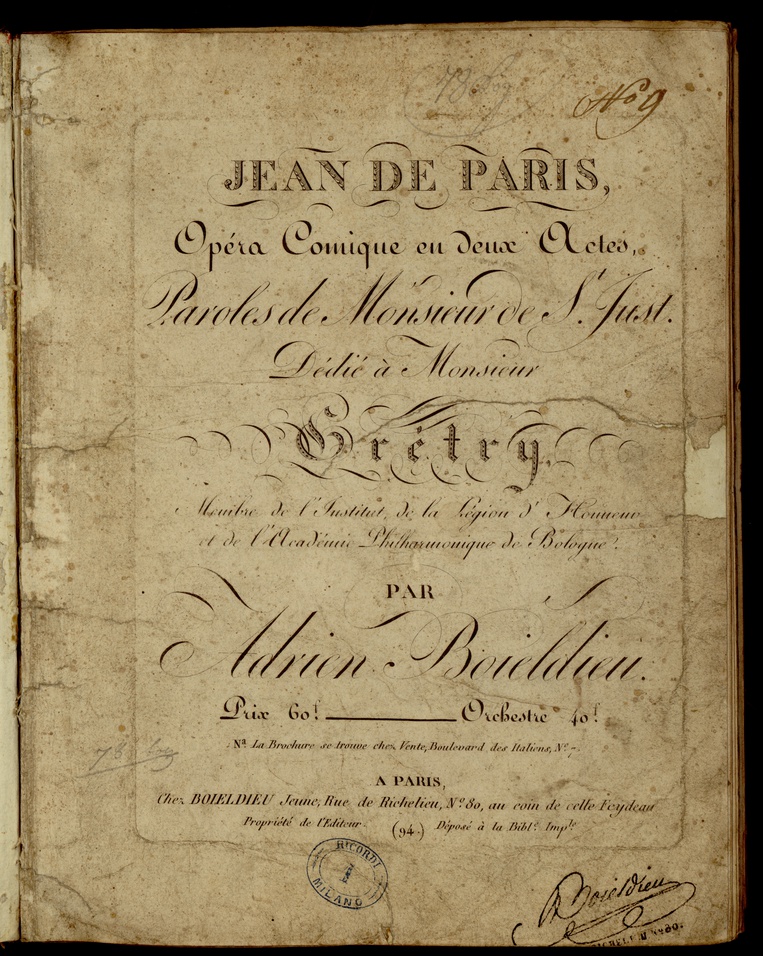 No 9
JEAN DE PARIS,
Opéra Comique en deux Actes,
Paroles de Monsieur de St. Just.
Dédié à Monsieur
Grétry,
Membre de l'Institut, de la Légion d'Honneur
et de l'Académie Philharmonique de Bologne.
PAR
Adrien Boieldieu.
Prix 60f Orchestre 40f
Na La Brochure se trouve chez Vente, Boulevard des Italiens, No. 7.
A PARIS,
Chez BOIELDIEU Jeune, Rue de Richelieu, No 80, au coin de celle Feydeau
Propriété de l'Editeur. (94.) Déposé à la Bible. Imple.
RICORDI
MILANO
Boieldieu